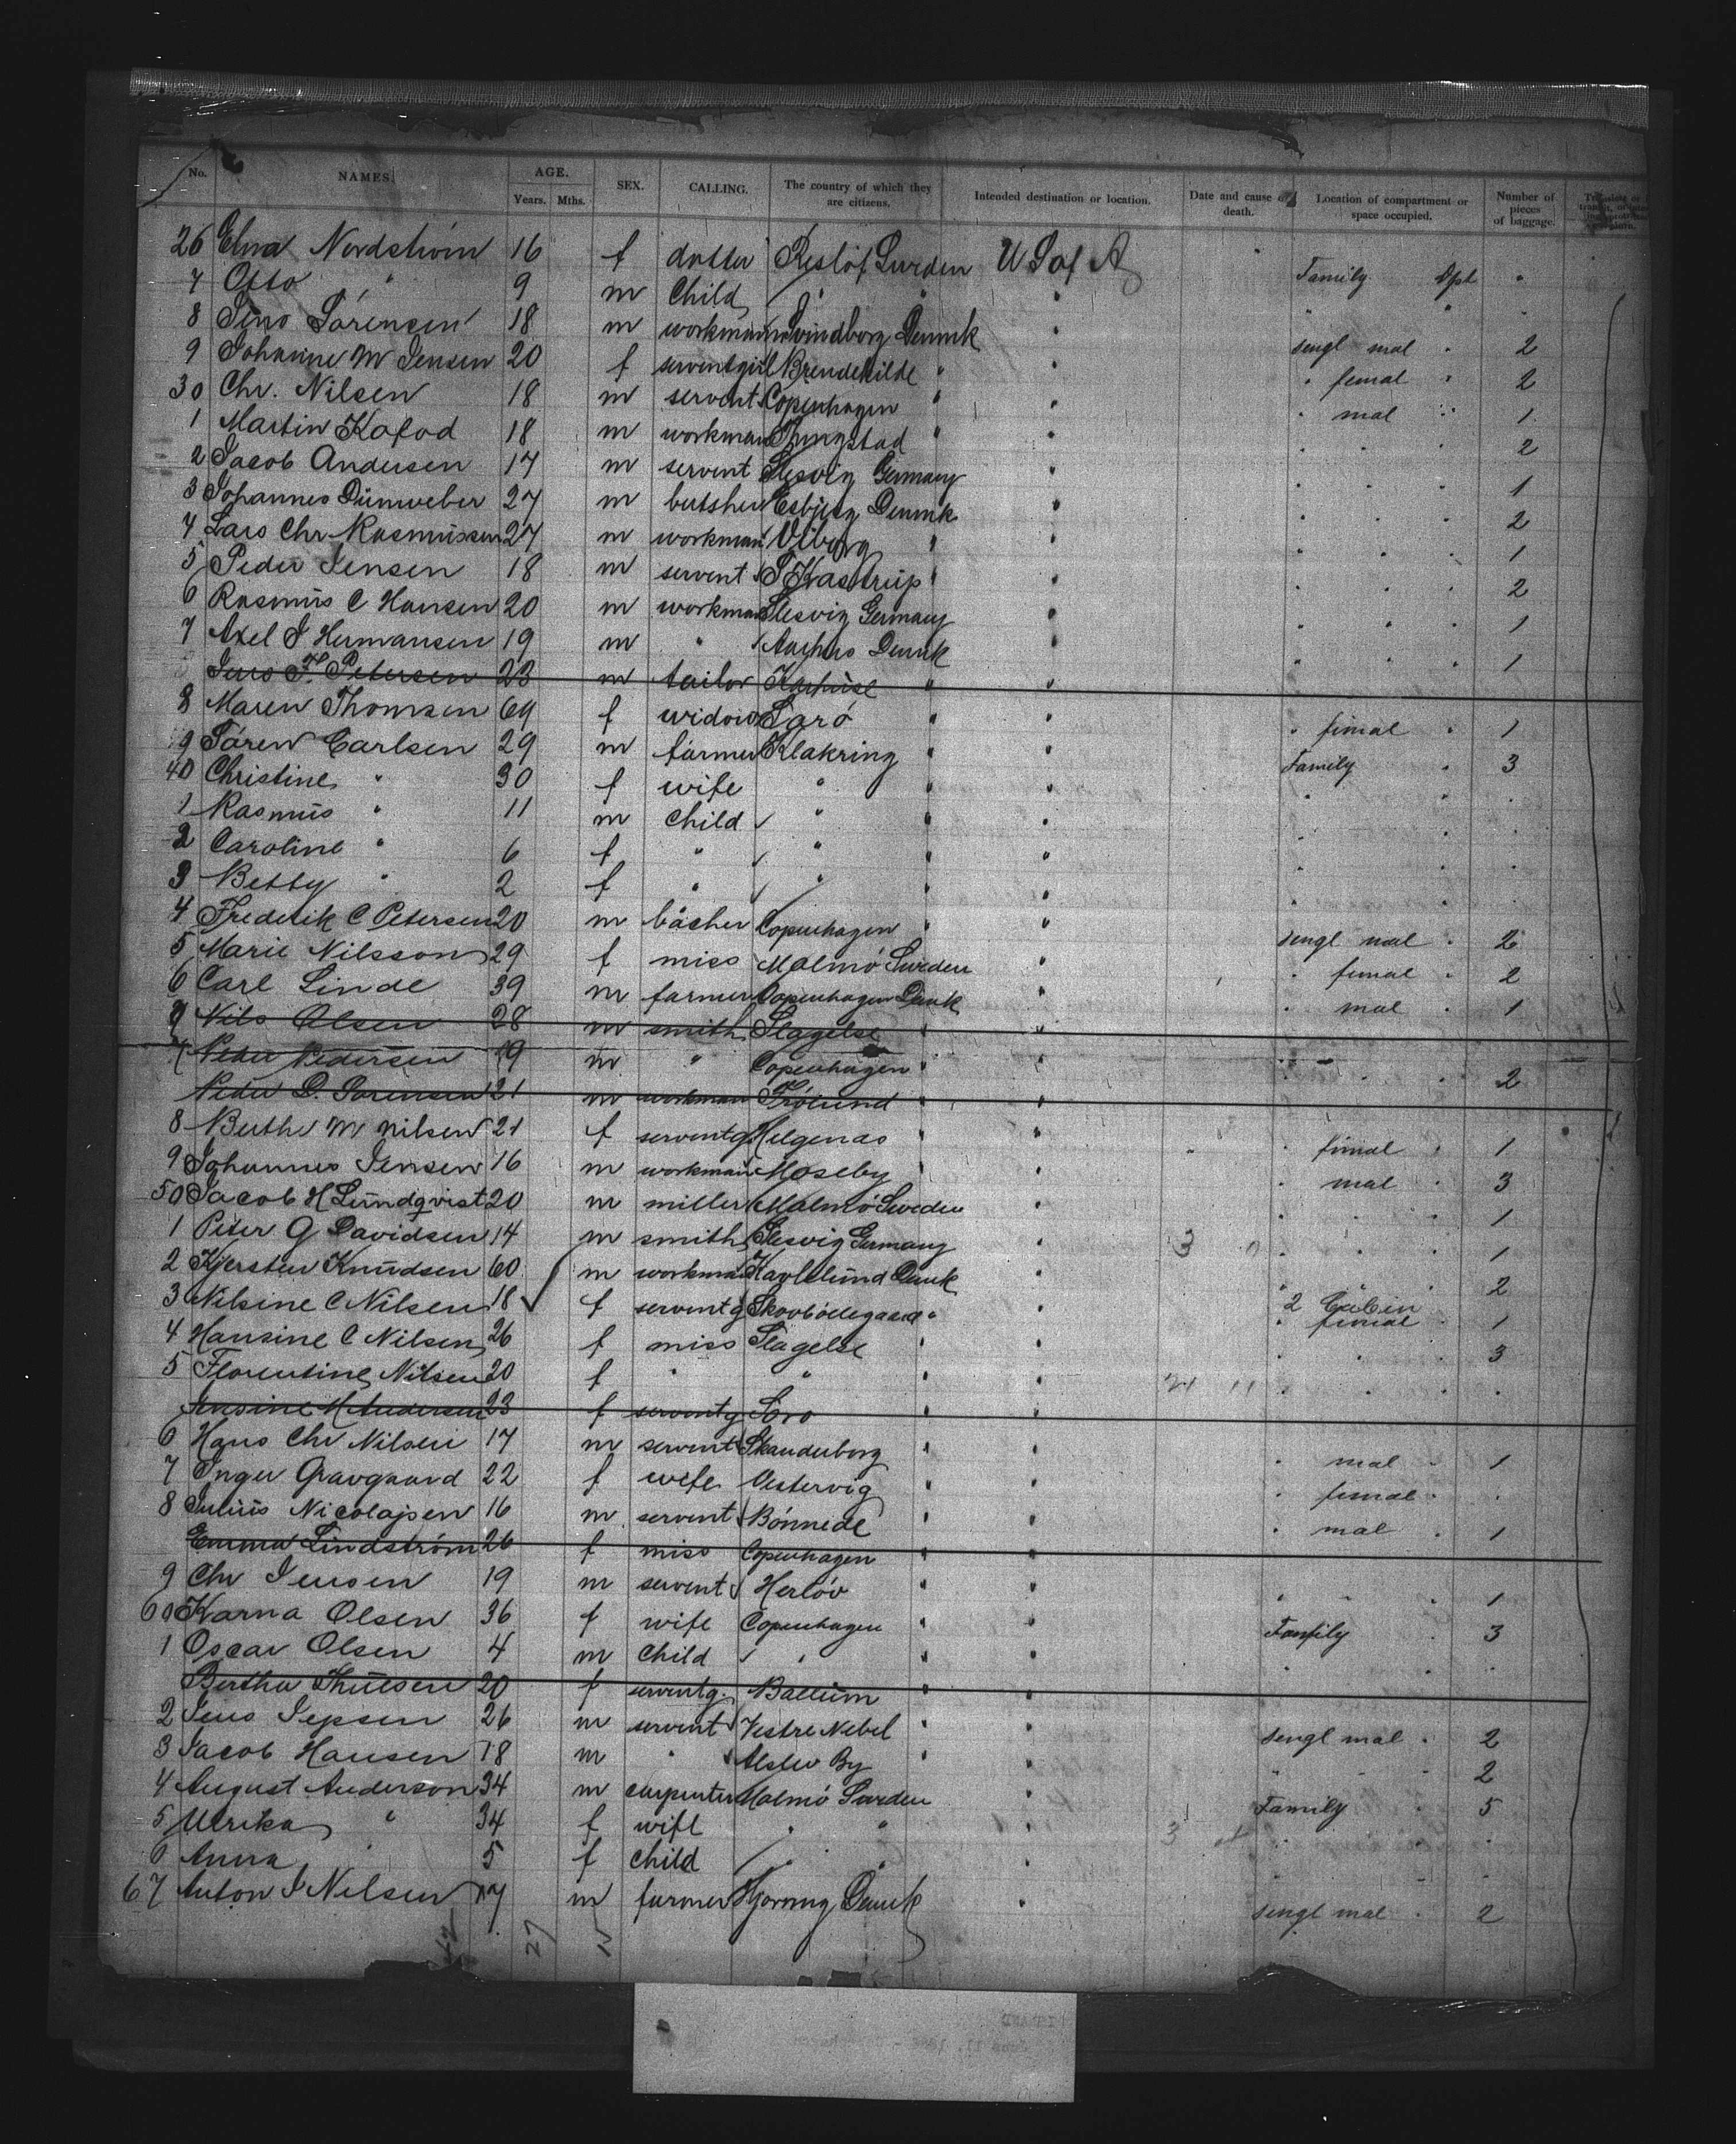 No. NAMES. AGE. Years. Mths. SEX. CALLING. The country of which they are citizens. Intended destination or location. Date and cause of death. Location of compartment or space occupied. Number of pieces of baggage.
26 Elma Nordström 16 f dotter Reslöf Sweden U S of A Family Dpt "
7 Otto " 9 m Child " " " " " "
8 Jens Sörensen 18 m workman Svindborg Denmk " sengl mal " 2
9 Johanne M Jensen 20 f serventgirl Brendekilde " " " femal " 2
30 Chr. Nilsen 18 m servent Copenhagen " " " mal " 1
1 Martin Kofod 18 m workman " " " " " 2
2 Jacob Andersen 17 m servent Slesvig Germany " " " " 1
3 Johannes Dünweber 27 m butsher Esbjerg Denmk " " " " 2
4 Lars Chr Rasmussen 27 m workman Viborg " " " " " 1
5 Peder Jensen 18 m servent Kastrup " " " " " 2
6 Rasmus C Hansen 20 m workman Slesvig Germany " " " " 1
7 Axel J Hermansen 19 m " Aarhus Denmk " " " " 1
Jens F. Petersen 23 m tailor " "
8 Maren Thomsen 64 f widow Sorö " " " fimal " 1
9 Sören Carlsen 29 m farmer Klakring " " Family " 3
40 Christine " 30 f wife " " " " " "
1 Rasmus " 11 m Child " " " " " "
2 Caroline " 6 f " " " " " " "
3 Betty " 2 f " " " " " " "
4 Frederik C Petersen 20 m bäcker Copenhagen " " sengl mal " 2
5 Marie Nilsson 29 f miss Malmö Sweden " " femal " 2
6 Carl Linde 39 m farmer Copenhagen Dmk " " mal " 1
Nils Olsen 28 m smith Slagelse " "
7 Peder Pedersen 19 m " Copenhagen " " " " " 2
Peder D. Sorensen 21 m workman Frölund " "
8 Berthe M Nilsen 21 f serventg Helgenas " " " fimal " 1
9 Johannes Jensen 16 m workman Moseby " " " mal " 3
50 Jacob H Lundqvist 20 m miller Malmö Sweden " " " " 1
1 Peter G Davidsen 14 m smith Slesvig Germany " 3 " " " 1
2 Kjersten Knudsen 60 m workman Karlslund Dmk " " " " 2
3 Nilsine C Nilsen 18 f serventg " " 2 Cabin " fimal " 1
4 Hansine C Nilsen 26 f miss Slagelse " " " " " 3
5 Florentine Nilsen 20 f " " " " " " " "
Ansine M Andersen 23 f serventg Soro " "
6 Hans Chr Nilsen 17 m servent Skanderborg " " " mal " 1
7 Inger Gravgaard 22 f wife Vestervig " " " femal " "
8 Julius Nicolajsen 16 m servent Bönnede " " " mal " 1
Emma Lindström 26 f miss Copenhagen " "
9 Chr Jensen 19 m servent Herlöv " " " " " 1
60 Karna Olsen 36 f wife Copenhagen " " Family " 3
1 Oscar Olsen 4 m Child " " " " " "
Bertha 20 f serventg. Ballum " "
2 Jens Jepsen 26 m servent Vestre Nebel " " sengl mal " 2
3 Jacob Hansen 18 m " Alslev By " " " " 2
4 August Anderson 34 m carpenter Malmö Sweden " Family " 5
5 Ulrika " 34 f wife " " " 3 " " "
6 Anna " 5 f child " " " " " "
67 Anton J Nelsen 17 m farmer Hjörring Dmk " sengl mal " 2
27